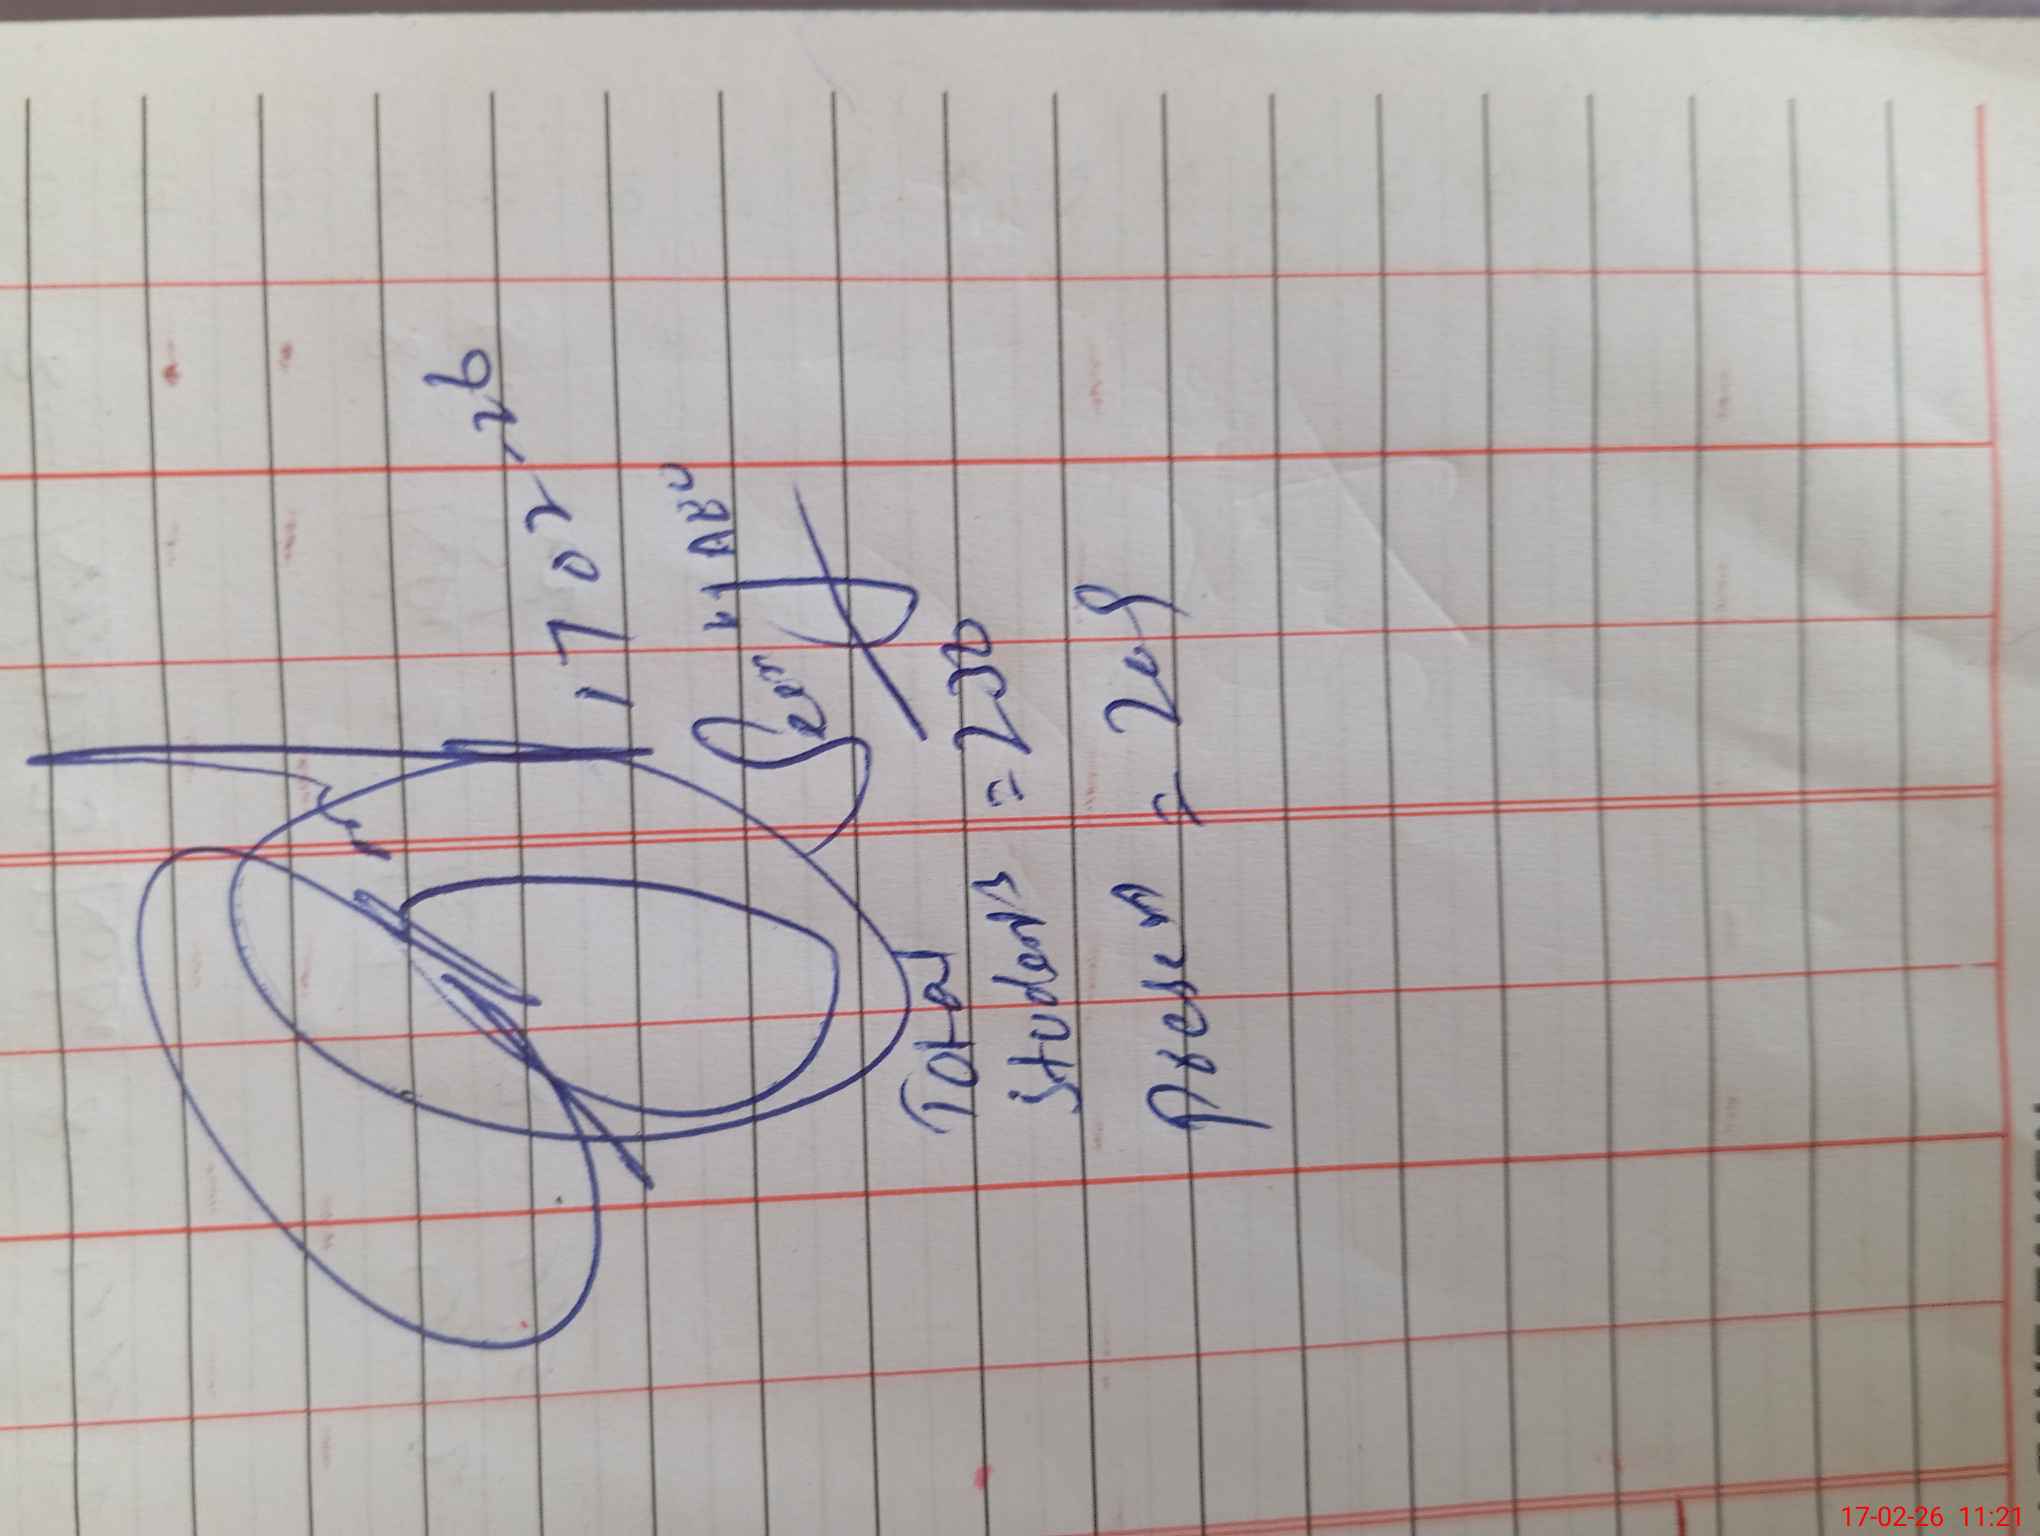 17 02-26
Total
Students = 230
Present = 209
17-02-26 11:21